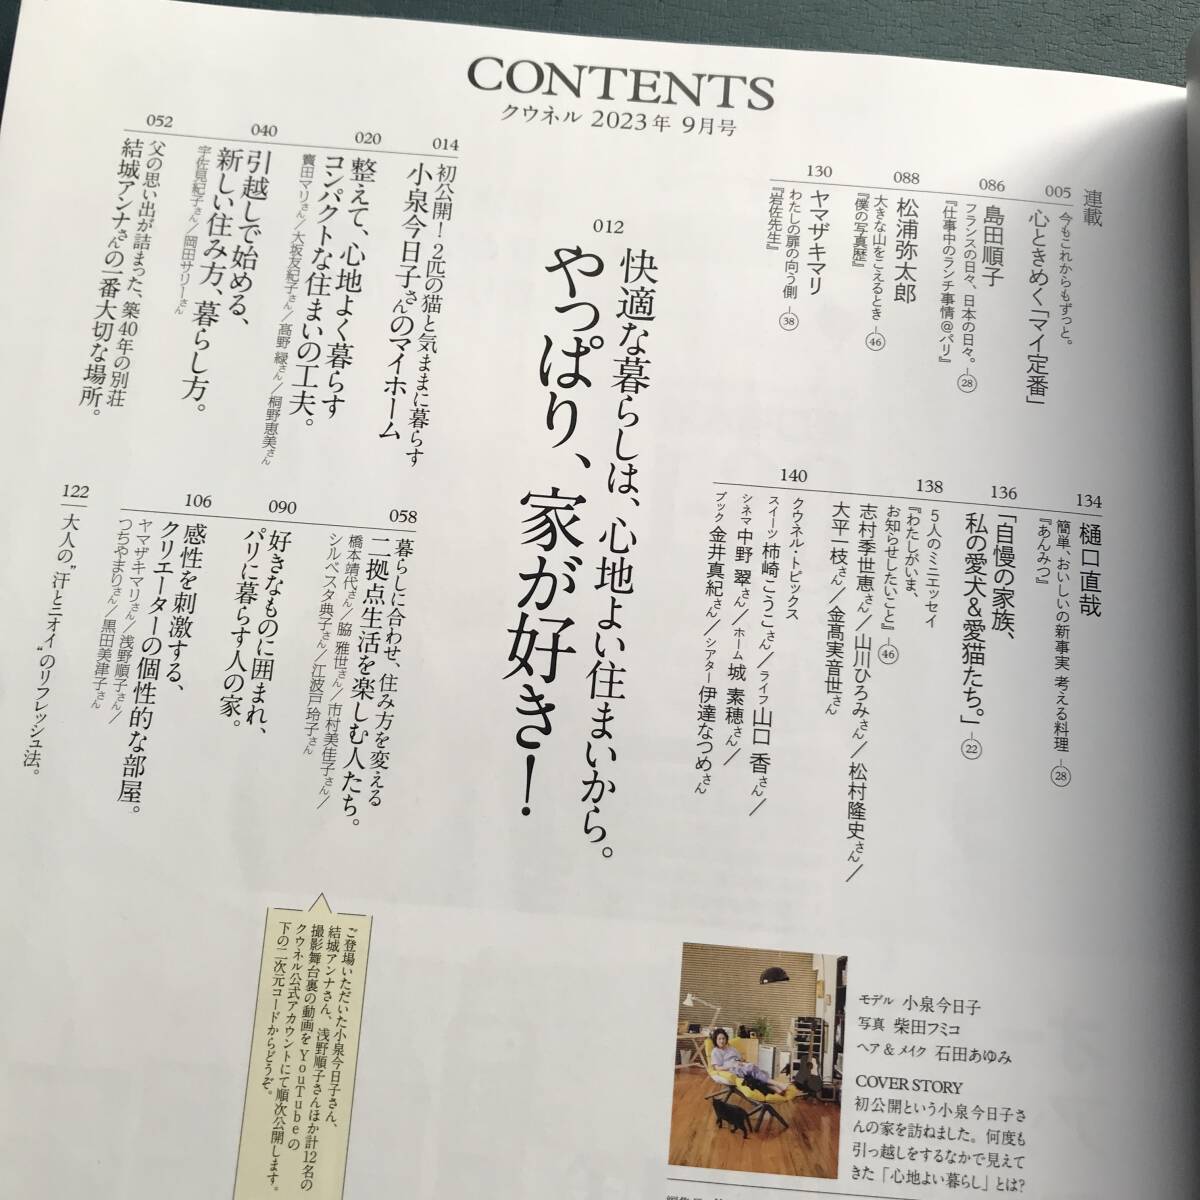 CONTENTS
クウネル 2023年 9月号
連載
005
今もこれからもずっと。
心ときめく「マイ定番」
086
島田順子
フランスの日々、日本の日々。
『仕事中のランチ事情@パリ』
28
088
松浦弥太郎
大きな山をこえるとき
『僕の写真歴』
46
130
ヤマザキマリ
わたしの扉の向う側
『岩佐先生』
38
134
樋口直哉
簡単、おいしいの新事実 考える料理
『あんみつ』
28
136
「自慢の家族、
私の愛犬&愛猫たち。」
22
138
5人のミニエッセイ
『わたしがいま、
お知らせしたいこと』
46
志村季世恵さん/山川ひろみさん/松村隆史さん/
大平一枝さん/金髙実音世さん
140
クウネル・トピックス
スイーツ 柿崎こうこさん/ライフ 山口 香さん/
シネマ 中野 翠さん/ホーム 城 素穂さん/
ブック 金井真紀さん/シアター 伊達なつめさん
012
快適な暮らしは、心地よい住まいから。
やっぱり、家が好き!
014
初公開!2匹の猫と気ままに暮らす
小泉今日子さんのマイホーム
020
整えて、心地よく暮らす
コンパクトな住まいの工夫。
賓田マリさん/大坂友紀子さん/高野 緑さん/桐野恵美さん
040
引越しで始める、
新しい住み方、暮らし方。
宇佐見紀子さん/岡田サリーさん
052
父の思い出が詰まった、築40年の別荘
結城アンナさんの一番大切な場所。
058
暮らしに合わせ、住み方を変える
二拠点生活を楽しむ人たち。
橋本靖代さん/脇 雅世さん/市村美佳子さん/
シルベスタ典子さん/江波戸玲子さん
090
好きなものに囲まれ、
パリに暮らす人の家。
106
感性を刺激する、
クリエーターの個性的な部屋。
ヤマザキマリさん/浅野順子さん/
つちやまりさん/黒田美津子さん
122
大人の“汗とニオイ”のリフレッシュ法。
ご登場いただいた小泉今日子さん、
結城アンナさん、浅野順子さんほか計12名の
撮影舞台裏の動画をYouTubeの
クウネル公式アカウントにて順次公開します。
下の二次元コードからどうぞ。
モデル 小泉今日子
写真 柴田フミコ
ヘア&メイク 石田あゆみ
COVER STORY
初公開という小泉今日子さ
んの家を訪ねました。何度も
引っ越しをするなかで見えて
きた「心地よい暮らし」とは?